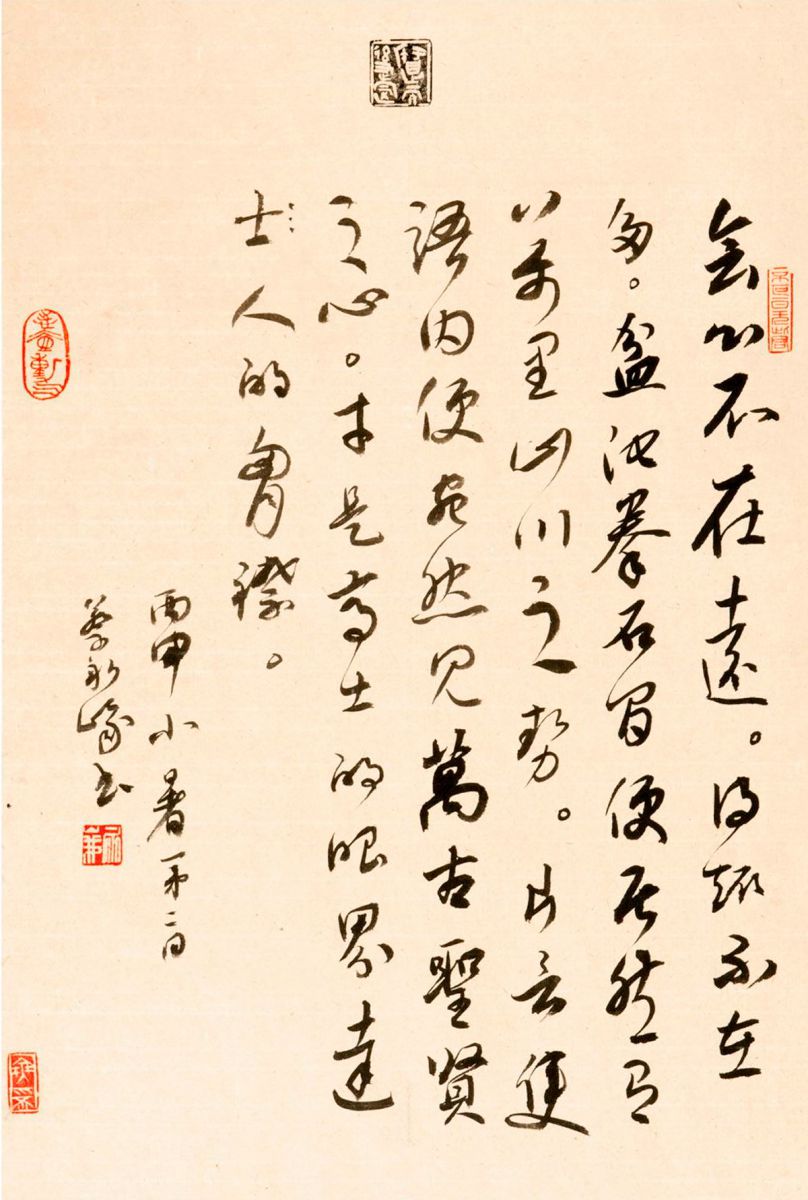 会心不在遠。得趣不在
多。盆池拳石間便居然有
萬里山川之勢。片言隻
語内便宛然見萬古聖賢
之心。才是高士的眼界達
士人的胸襟。
丙申小暑第二日
書